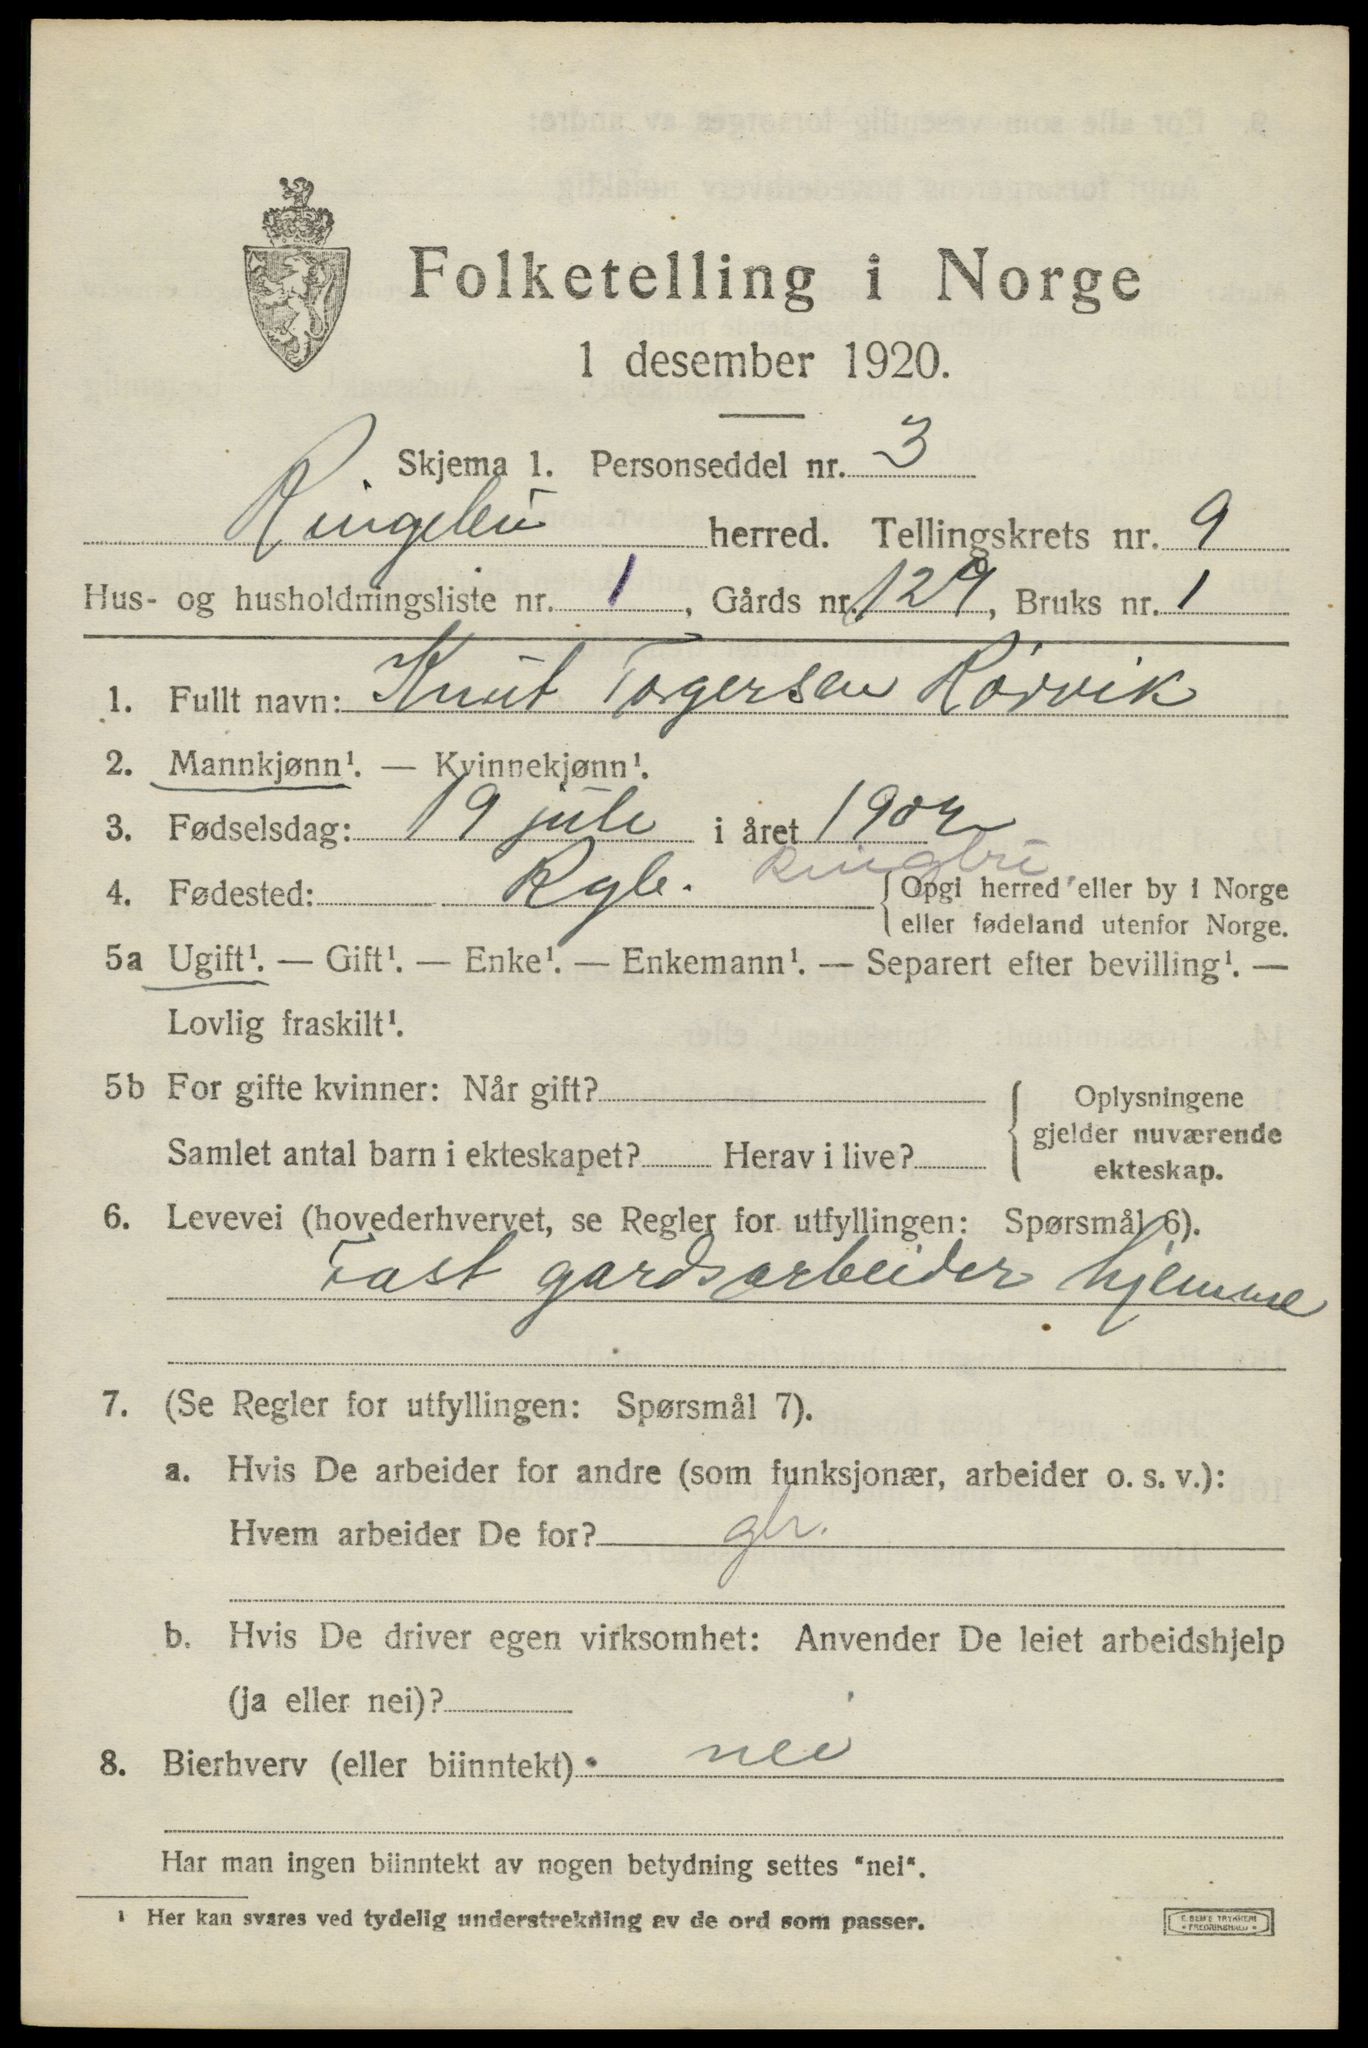 Folketelling i Norge
1 desember 1920.
Skjema 1. Personseddel nr. 3
Ringebu herred. Tellingskrets nr. 9
Hus- og husholdningsliste nr. 1, Gårds nr. 129, Bruks nr. 1
1. Fullt navn: Knut Torgersen Rørvik
2. Mannkjønn¹. — Kvinnekjønn¹.
3. Fødselsdag: 19 juli i året 1904
4. Fødested: Rgb. Ringbu { Opgi herred eller by i Norge
eller fødeland utenfor Norge.
5a Ugift¹. — Gift¹. — Enke¹. — Enkemann¹. — Separert efter bevilling¹. —
Lovlig fraskilt¹.
5b For gifte kvinner: Når gift? { Oplysningene
gjelder nuværende
ekteskap.
Samlet antal barn i ekteskapet? Herav i live?
6. Levevei (hovederhvervet, se Regler for utfyllingen: Spørsmål 6).
Fast gardsarbeider hjemme
7. (Se Regler for utfyllingen: Spørsmål 7).
a. Hvis De arbeider for andre (som funksjonær, arbeider o. s. v.):
Hvem arbeider De for? gbr.
b. Hvis De driver egen virksomhet: Anvender De leiet arbeidshjelp
(ja eller nei)?
8. Bierhverv (eller biinntekt) nei
Har man ingen biinntekt av nogen betydning settes "nei".
¹ Her kan svares ved tydelig understrekning av de ord som passer.